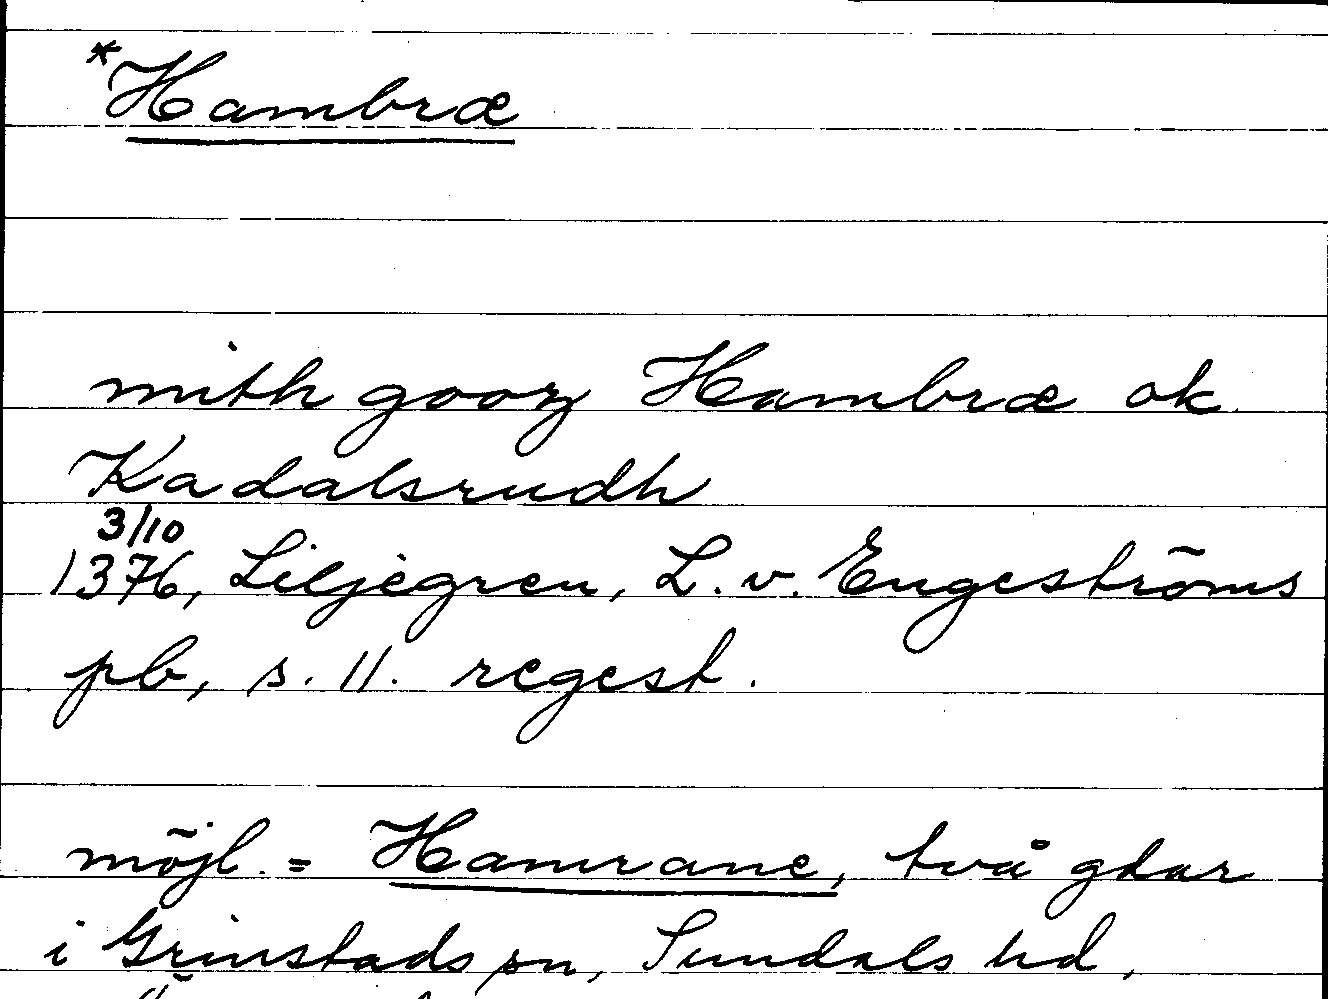 *Hambræ
mith gooz Hambræ ok
Kadalsrudh
3/10
1376, Liljegren, L. v. Engeströms
pb, s. 11. regest.
möjl. = Hamrane, två gdar
i Grinstads sn, Sundals hd,